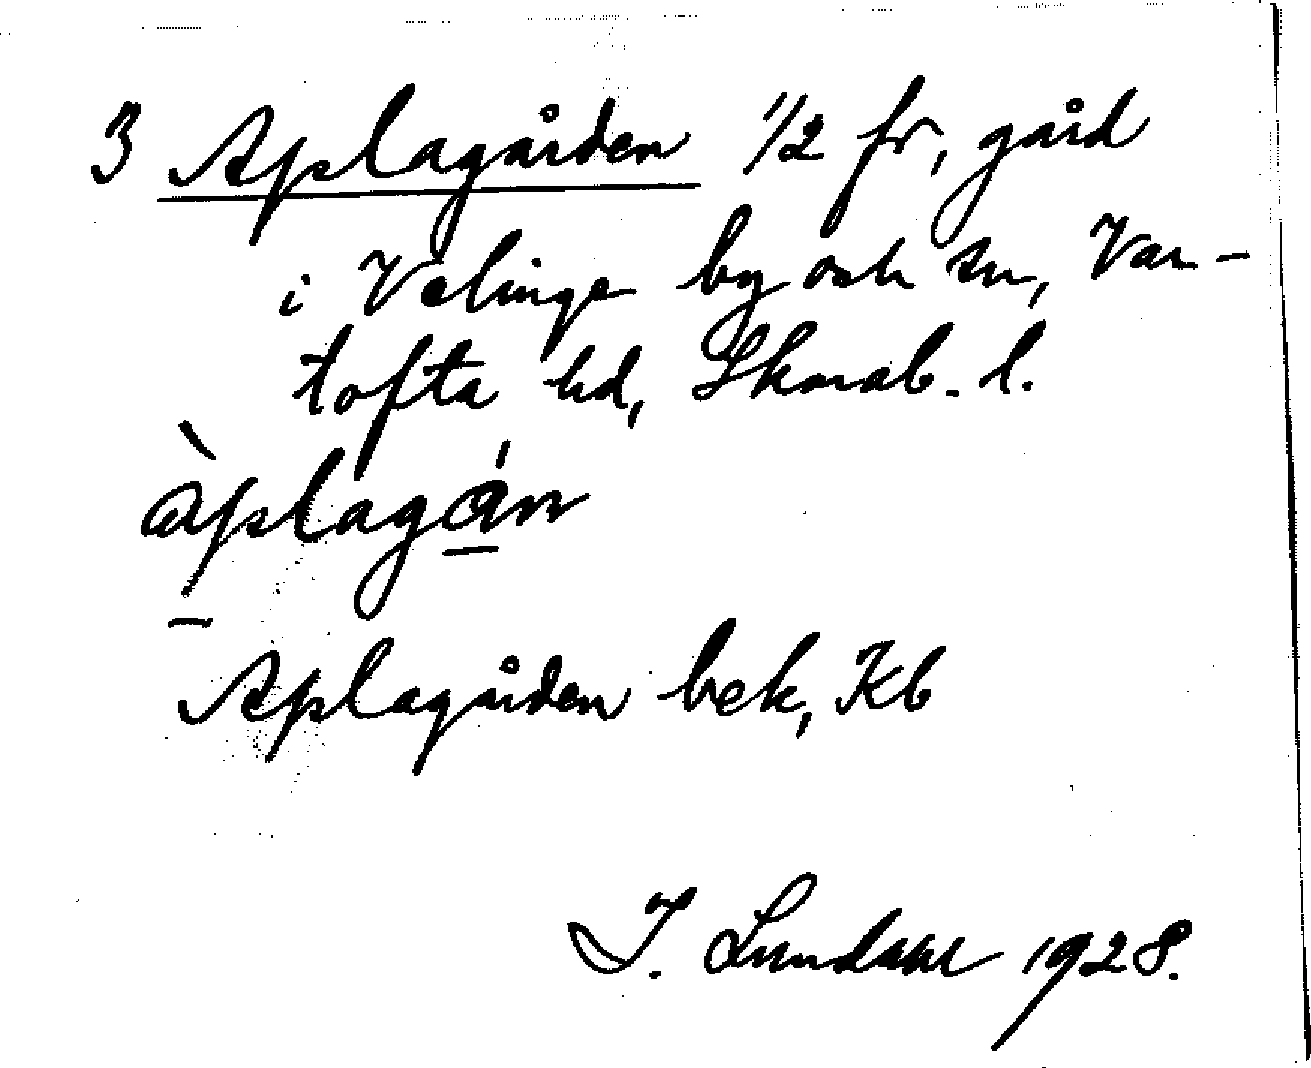 3 Aplagården 1/2 fr, gård
i Velinge by och sn, Var-
tofta hd, Skarab. l.
àplagán
Aplagården bek, Kb
I. Lundahl 1928.